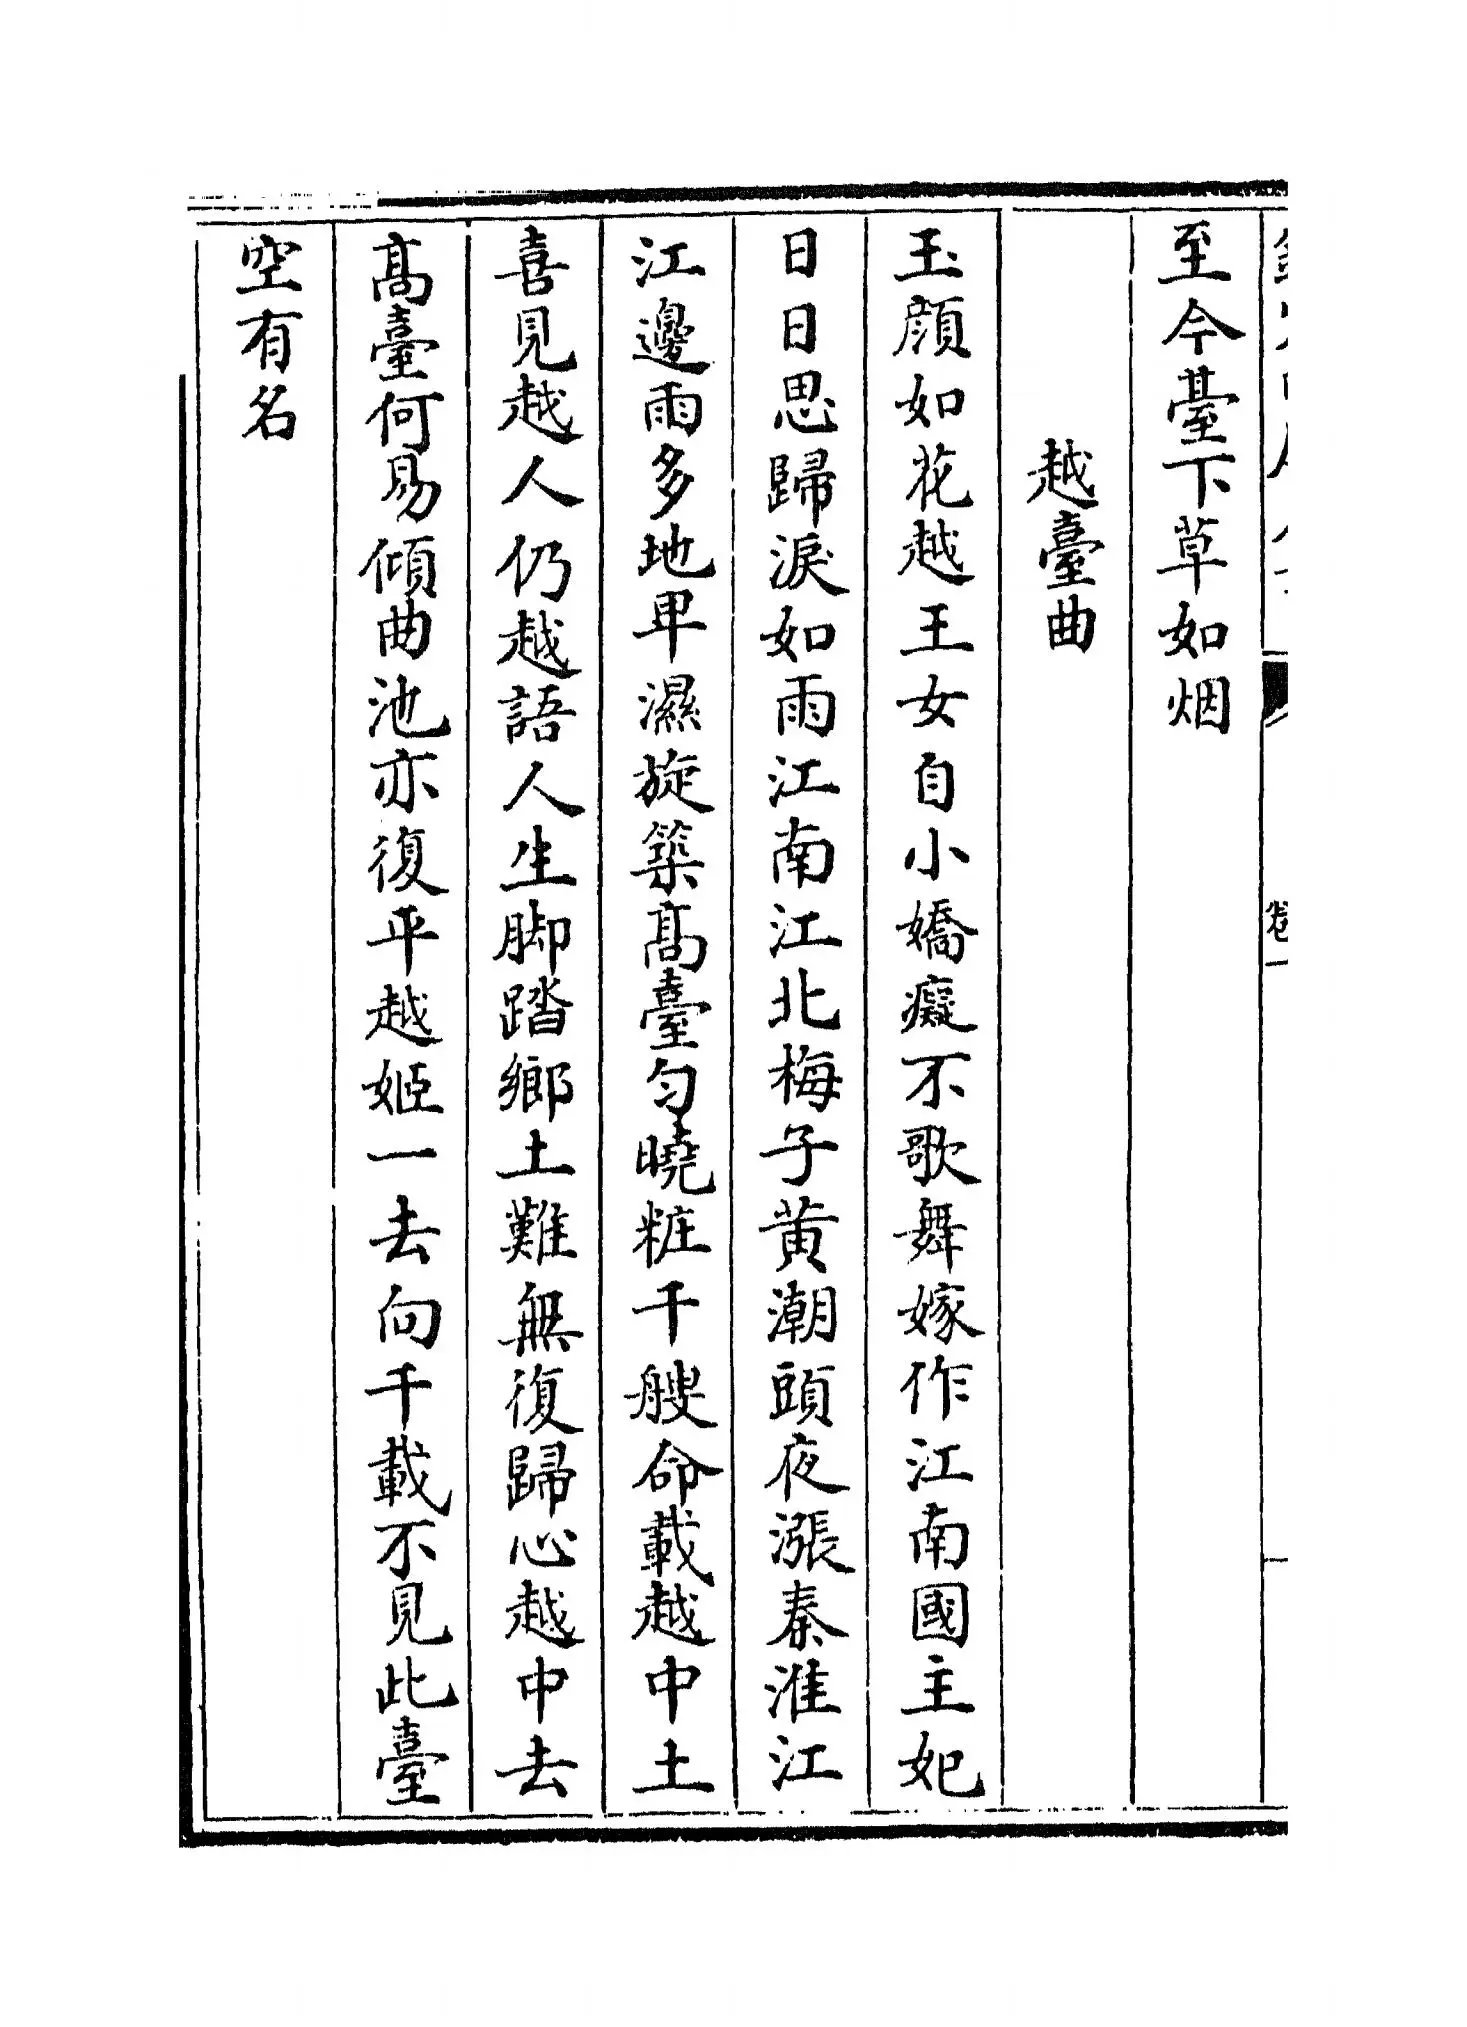 至今臺下草如烟
越臺曲
玉顔如花越王女自小嬌癡不歌舞嫁作江南國主妃
日日思歸淚如雨江南江北梅子黄潮頭夜漲秦淮江
江邊雨多地卑濕旋築髙臺匀曉粧千艘命載越中土
喜見越人仍越語人生脚踏鄉土難無復歸心越中去
髙臺何易傾曲池亦復平越姬一去向千載不見此臺
空有名